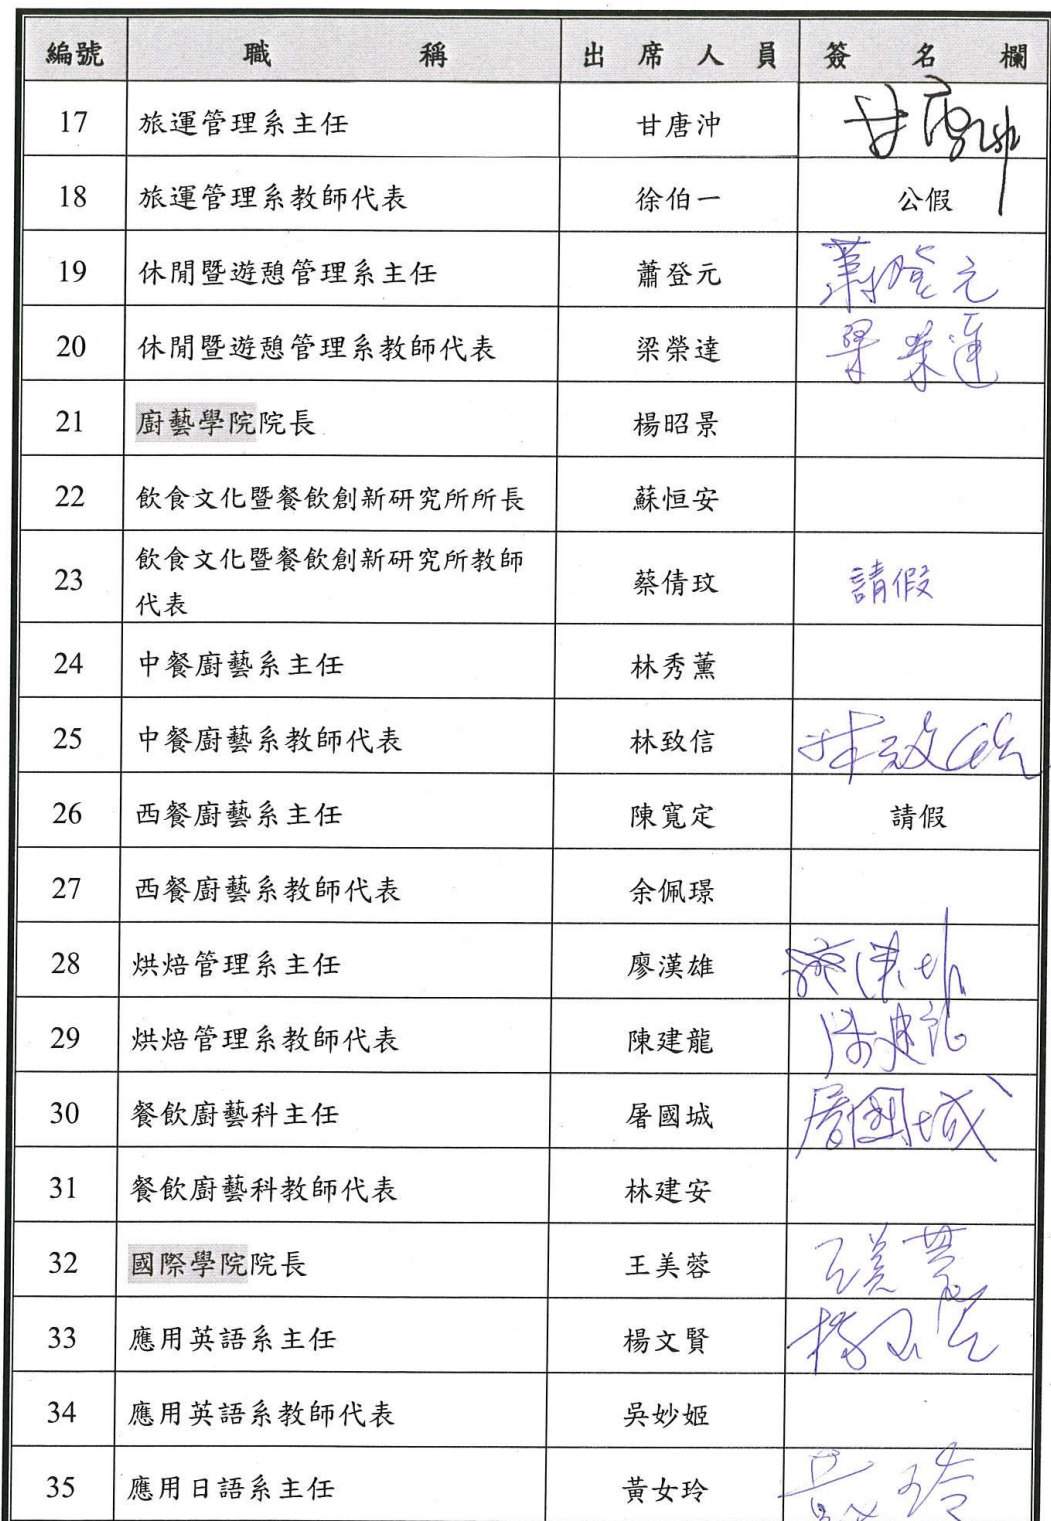 編號 職稱 出席人員 簽名欄
17 旅運管理系主任 甘唐沖 甘唐沖
18 旅運管理系教師代表 徐伯一 公假
19 休閒暨遊憩管理系主任 蕭登元 蕭登元
20 休閒暨遊憩管理系教師代表 梁榮達 梁榮達
21 廚藝學院院長 楊昭景
22 飲食文化暨餐飲創新研究所所長 蘇恒安
23 飲食文化暨餐飲創新研究所教師 蔡倩玟 請假
代表
24 中餐廚藝系主任 林秀薰
25 中餐廚藝系教師代表 林致信 林致信
26 西餐廚藝系主任 陳寬定 請假
27 西餐廚藝系教師代表 余佩璟
28 烘焙管理系主任 廖漢雄 廖漢雄
29 烘焙管理系教師代表 陳建龍 陳建龍
30 餐飲廚藝科主任 屠國城 屠國城
31 餐飲廚藝科教師代表 林建安
32 國際學院院長 王美蓉 王美蓉
33 應用英語系主任 楊文賢 楊文賢
34 應用英語系教師代表 吳妙姬
35 應用日語系主任 黃女玲 黃女玲